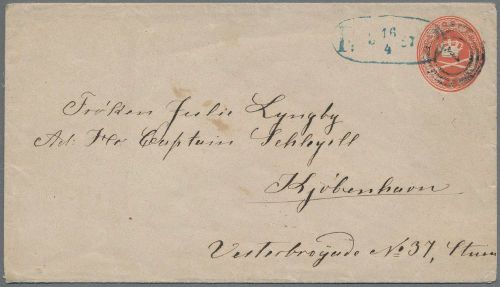 16
4
Fröken Julie Lyngby
Ad: Hr Captain Schleyell
Kjöbenhavn
Vesterbrogade No 37, Stuen